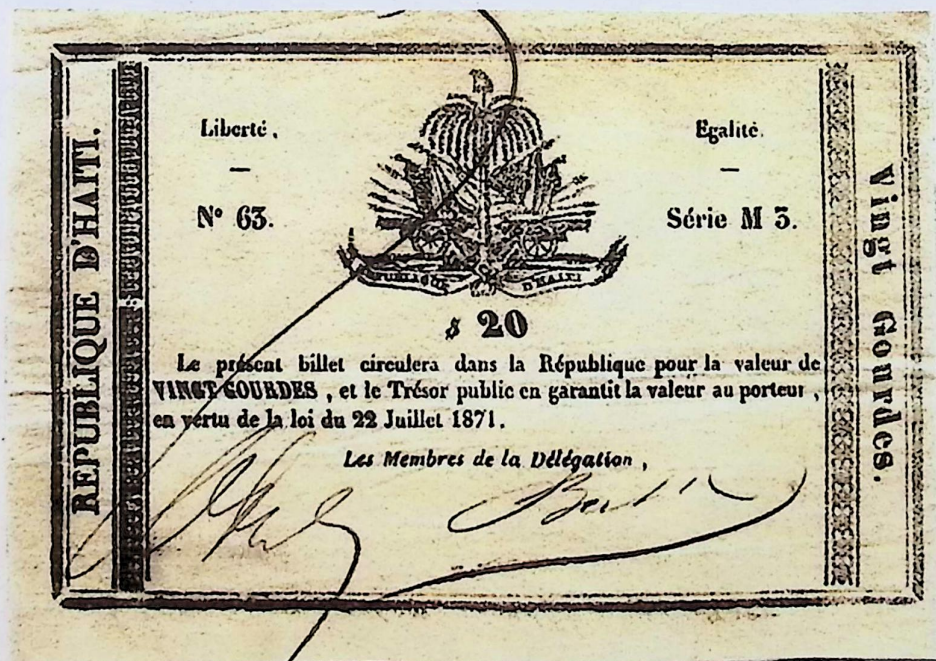 REPUBLIQUE D'HAITI.
Liberté,
Egalité.
N° 63.
Série M 3.
REPUBLIQUE D'HAITI
$ 20
Le présent billet circulera dans la République pour la valeur de
VINGT GOURDES, et le Trésor public en garantit la valeur au porteur,
en vertu de la loi du 22 Juillet 1871.
Les Membres de la Délégation,
Vingt Gourdes.